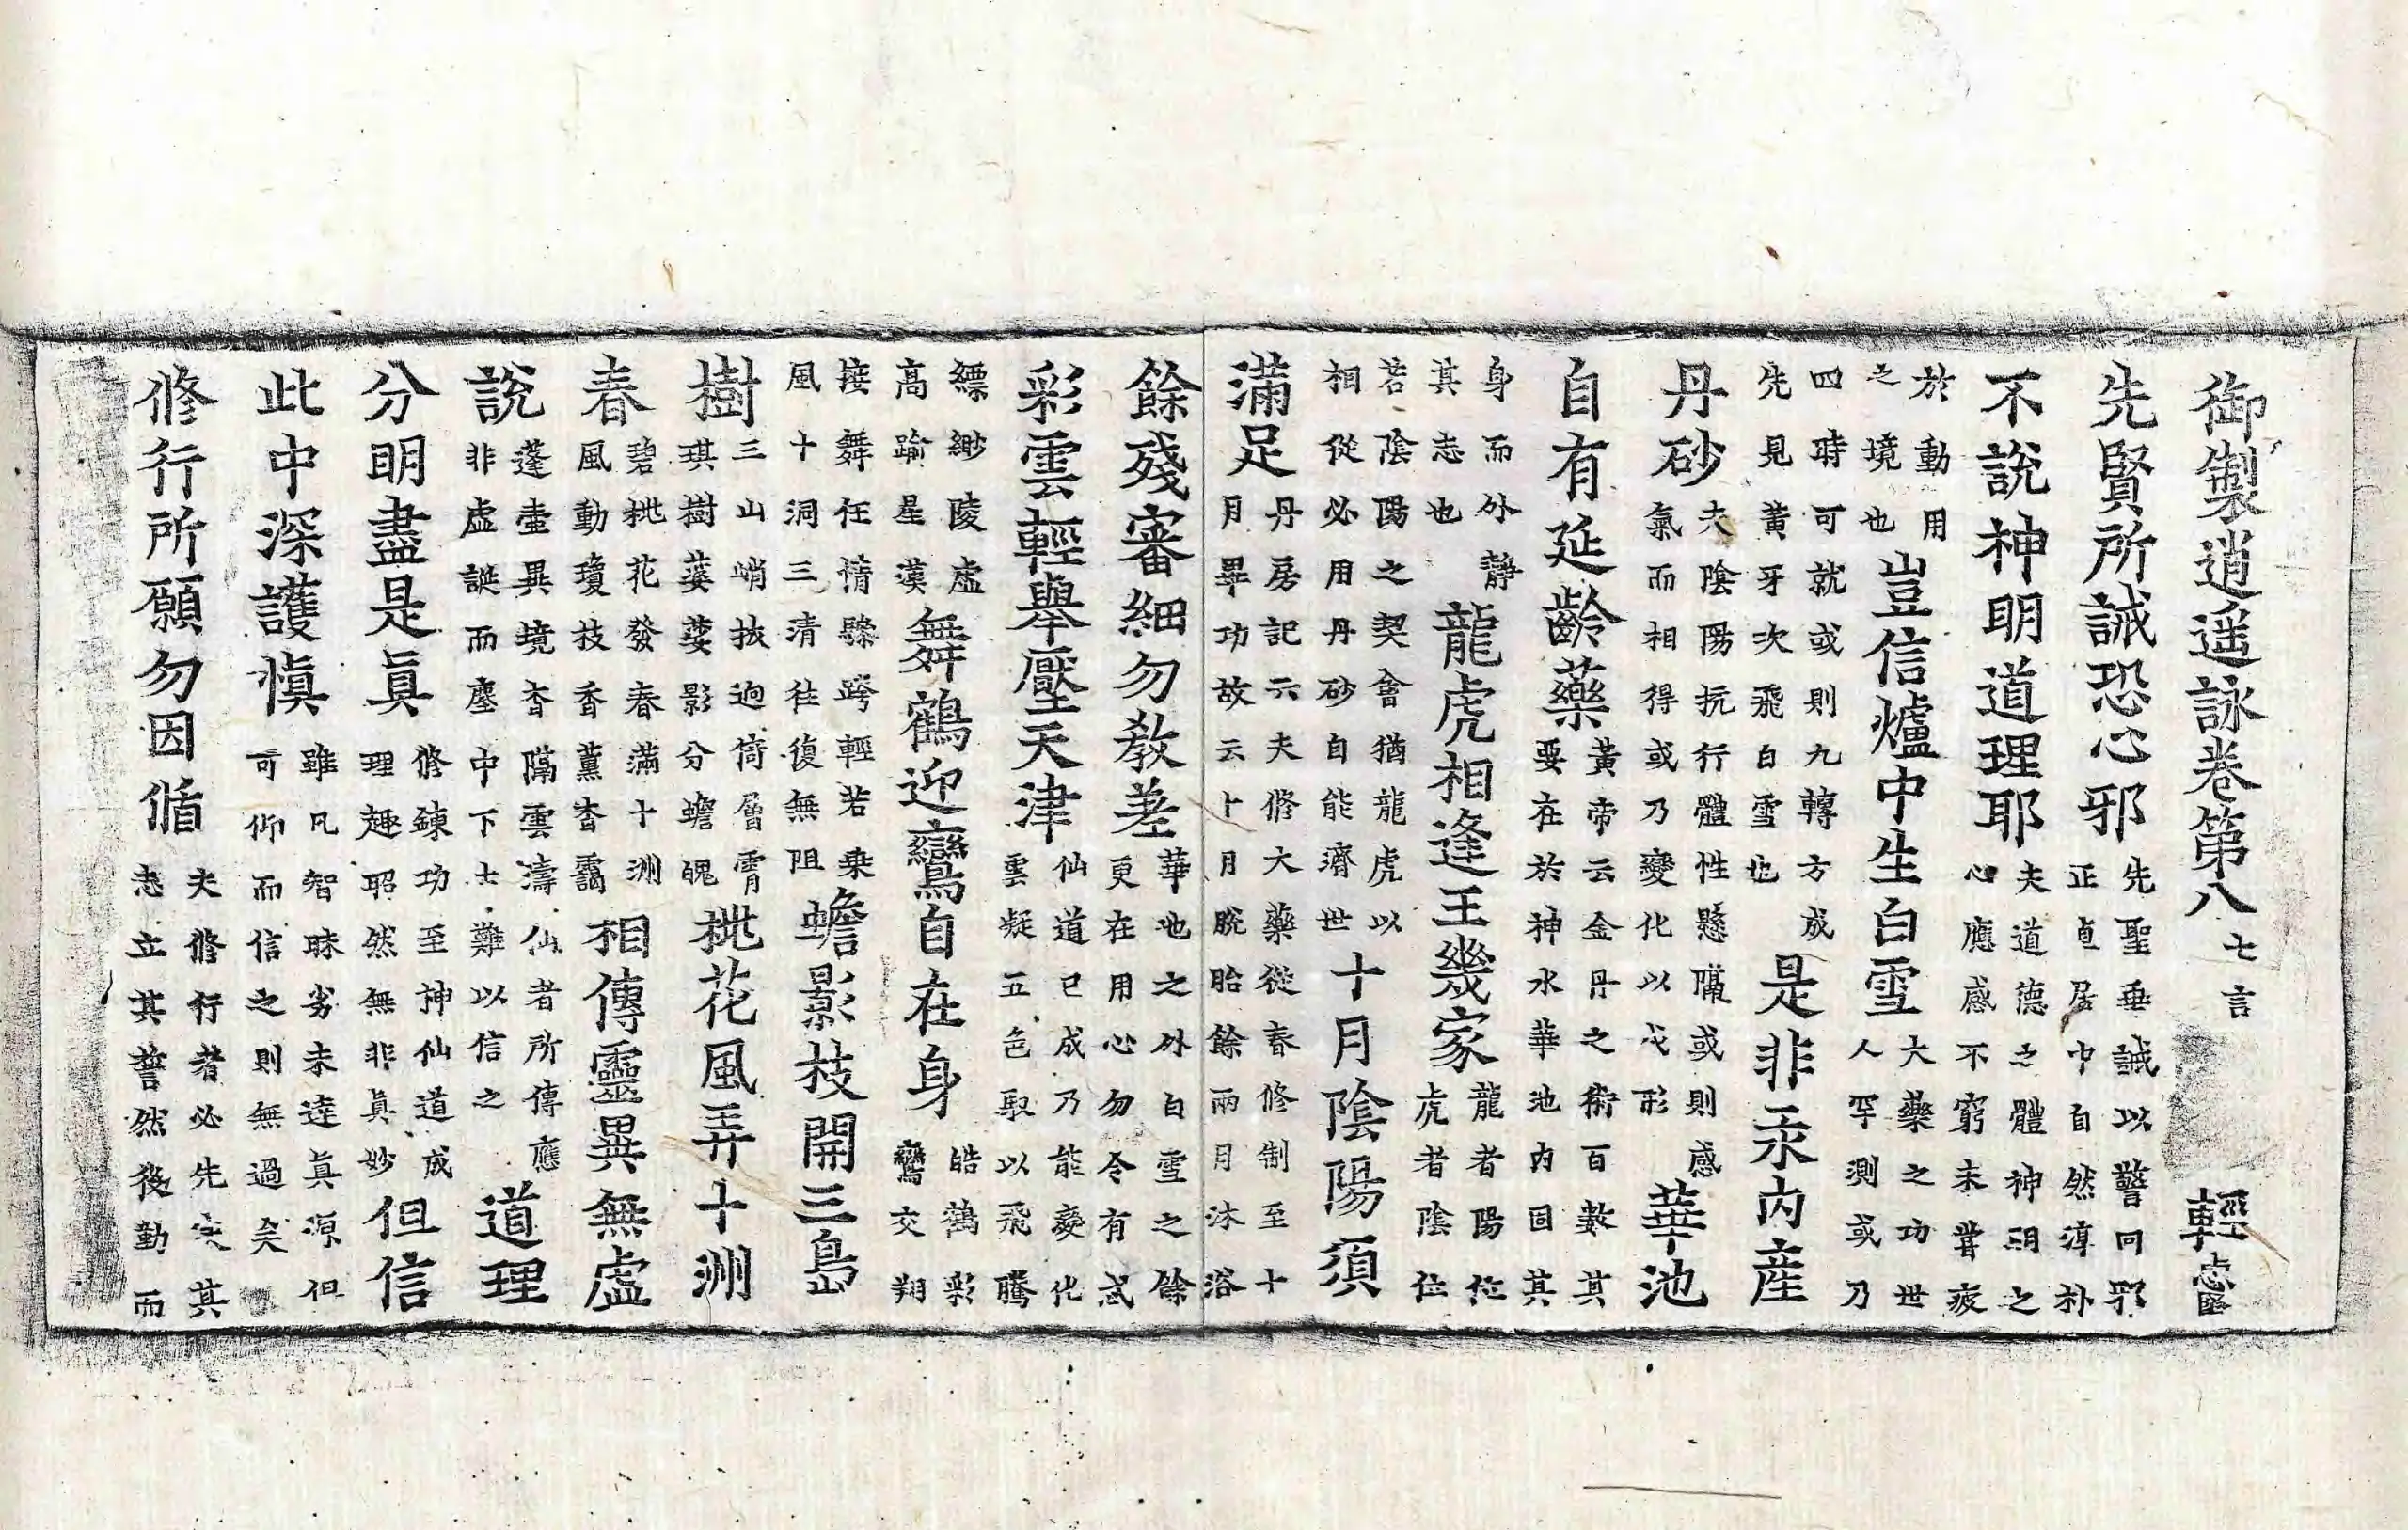 御製逍遥詠卷第八 七言 輕
先賢所誡恐心邪 先聖垂誡以警回邪 正貞居中自然淳朴
不說神明道理耶 夫道德之體神明之 心應感不窮未甞疲
於動用 之境也 豈信爐中生白雪 大藥之功世 人罕測或乃
四時可就或則九轉方成 先見黃牙次飛白雪也 是非汞內産
丹砂 夫陰陽抗行體性懸隔或則感 氣而相得或乃變化以成形 華池
自有延齡藥 黃帝云金丹之術百數其 要在於神水華池内固其
身而外靜 其志也 龍虎相逢王幾家 龍者陽位 虎者陰位
若陰陽之契會猶龍虎以 相從必用丹砂自能濟世 十月陰陽須
滿足 丹房記云夫修大藥從春修制至十 月畢功故云十月脫胎餘兩月沐浴
餘殘審細勿教差 華池之外白雪之餘 更在用心勿令有忒
彩雲輕舉壓天津 仙道已成乃能變化 雲凝五色取以飛騰
縹緲陵虛 高踰星漢 舞鶴迎鸞自在身 皓鶴彩 鸞交翔
接舞任情驂跨輕若乘 風十洞三清往復無阻 蟾影枝開三島
樹 三山峭拔逈倚層霄 琪樹蔞影分蟾魄 桃花風弄十洲
春 碧桃花發春滿十洲 風動瓊枝香薰杳靄 相傳靈異無虛
說 蓬壺異境杳隔雲濤仙者所傳應 非虛誕而塵中下士難以信之 道理
分明盡是眞 修鍊功至神仙道成 理趣昭然無非眞妙 但信
此中深護愼 雖凡智昧劣未達眞源但 可仰而信之則無過矣
修行所願勿因循 夫修行者必先定其 志立其誓然後勤而